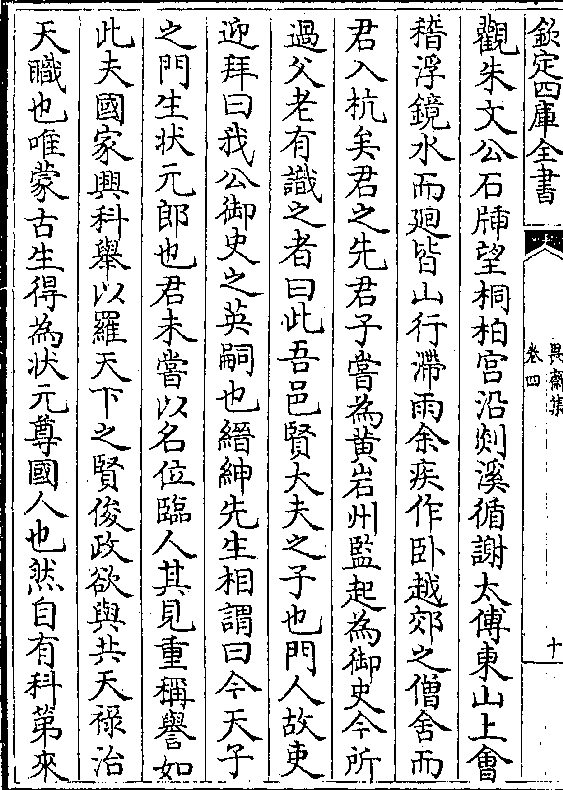 欽定四庫全書
畏齋集
卷四
十
觀朱文公石牐望桐柏宫沿剡溪循謝太傅東山上㑹
稽浮鏡水而廻皆山行滯雨余疾作卧越郊之僧舍而
君入杭矣君之先君子嘗為黄岩州監起為御史今所
過父老有識之者曰此吾邑賢大夫之子也門人故吏
迎拜曰我公御史之英嗣也縉紳先生相謂曰今天子
之門生状元郎也君未嘗以名位臨人其見重稱譽如
此夫國家興科舉以羅天下之賢俊政欲與共天禄治
天職也唯蒙古生得為状元尊國人也然自有科第來